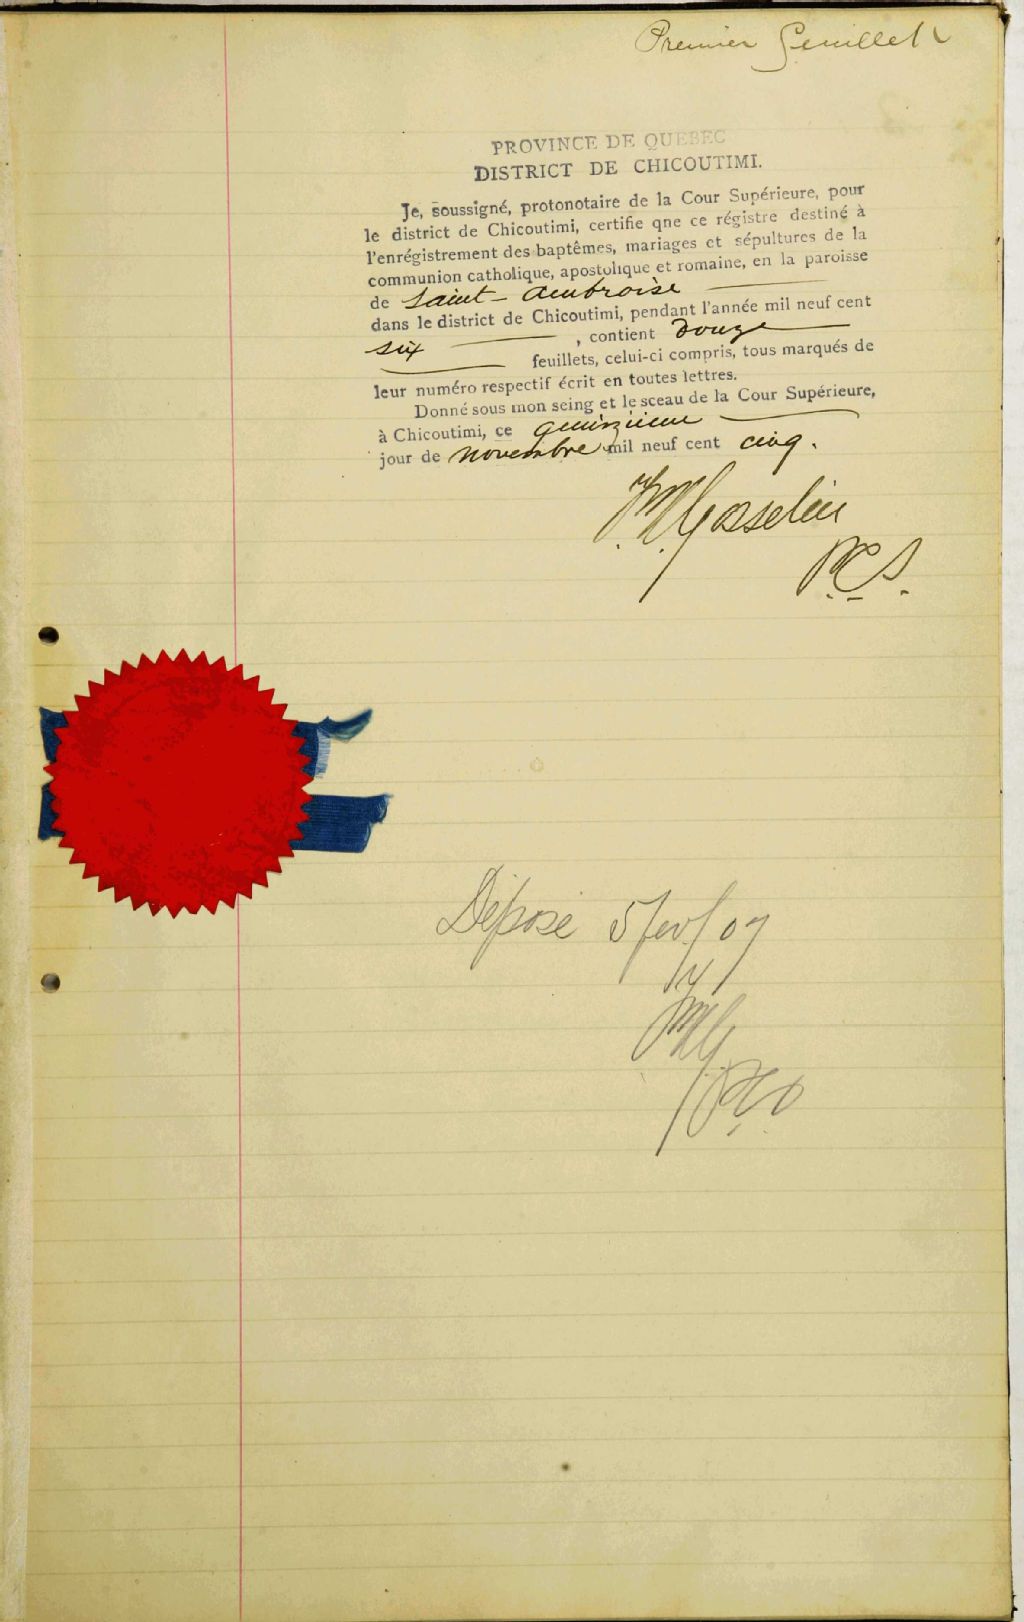 Premier feuillet
PROVINCE DE QUEBEC
DISTRICT DE CHICOUTIMI.
Je, soussigné, protonotaire de la Cour Supérieure, pour
le district de Chicoutimi, certifie qne ce régistre destiné à
l'enrégistrement des baptêmes, mariages et sépultures de la
communion catholique, apostolique et romaine, en la paroisse
de Saint-Ambroise
dans le district de Chicoutimi, pendant l'année mil neuf cent
six , contient Douze
feuillets, celui-ci compris, tous marqués de
leur numéro respectif écrit en toutes lettres.
Donné sous mon seing et le sceau de la Cour Supérieure,
à Chicoutimi, ce quinzième
jour de novembre mil neuf cent cinq.
Gosselin
P.C.S.
Déposé 5 fev/07